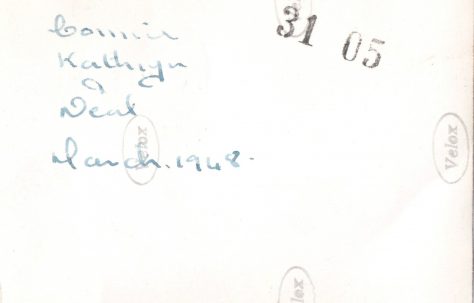 Connie
Kathryn
&
Neal
March. 1948.
31 05
Velox
Velox
Velox